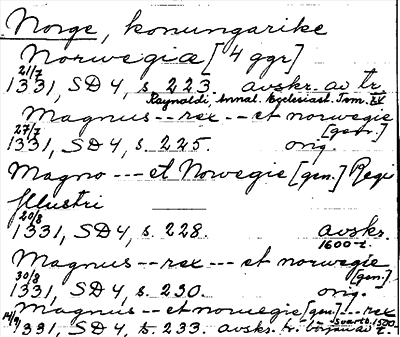 Norge, konungarike
Norwegiæ [4 ggr]
21/7
1331, SD 4, s. 223. avskr. av tr.
Raynaldi, Annal. Ecclesiast. Tom. XV
Magnus -- rex -- et norwegie
27/7 [gen.]
1331, SD 4, s. 225. orig.
Magno --- et Norwegie [gen.] Regi
Illustri
20/8
1331, SD 4, s. 228. avskr.
1600-t.
Magnus -- rex --- et norwegie
30/8 [gen.]
1331, SD 4, s. 230. orig.
Magnus -- et norwegie [gen.] -- rex
14/9
1331, SD 4, s. 233. avskr. fr.